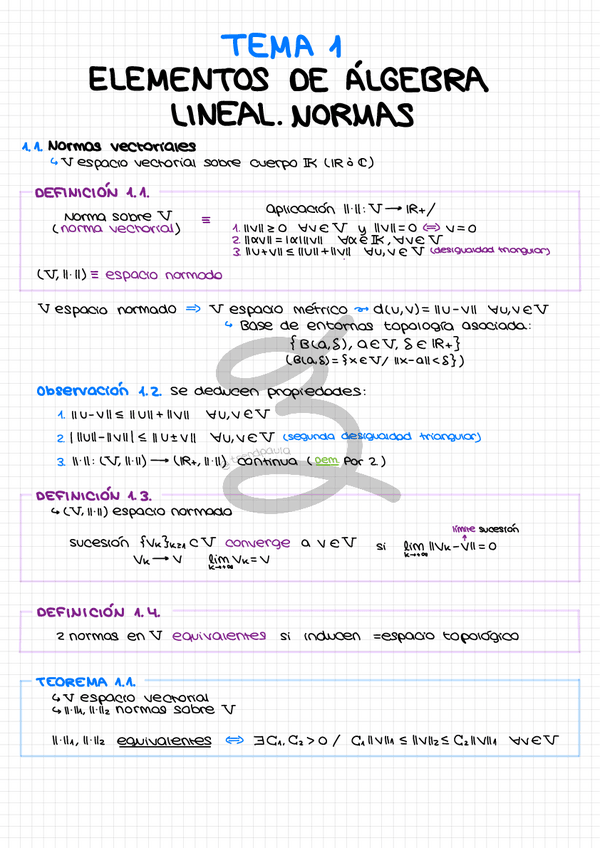 TEMA 1
ELEMENTOS DE ÁLGEBRA
LINEAL. NORMAS
1.1. Normas vectoriales
↳ V espacio vectorial sobre cuerpo K (R ó C)
DEFINICIÓN 1.1.
Norma sobre V (norma vectorial) ≡ aplicación ||·||: V → R+ /
1. ||v|| ≥ 0 ∀v ∈ V y ||v|| = 0 ⇔ v = 0
2. ||αv|| = |α| ||v|| ∀α ∈ K, ∀v ∈ V
3. ||u+v|| ≤ ||u|| + ||v|| ∀u,v ∈ V (desigualdad triangular)
(V, ||·||) ≡ espacio normado
V espacio normado ⇒ V espacio métrico ⇝ d(u,v) = ||u-v|| ∀u,v ∈ V
↳ Base de entornos topología asociada:
{B(a,δ), a ∈ V, δ ∈ R+}
(B(a,δ) = {x ∈ V / ||x-a|| < δ})
Observación 1.2. Se deducen propiedades:
1. ||u-v|| ≤ ||u|| + ||v|| ∀u,v ∈ V
2. | ||u|| - ||v|| | ≤ ||u±v|| ∀u,v ∈ V (segunda desigualdad triangular)
3. ||·||: (V, ||·||) → (R+, ||·||) continua (dem por 2)
DEFINICIÓN 1.3.
↳ (V, ||·||) espacio normado
límite sucesión
sucesión {Vk}k≥1 ⊂ V converge a v ∈ V si lim k→+∞ ||Vk - V|| = 0
Vk → V lim k→+∞ Vk = V
DEFINICIÓN 1.4.
2 normas en V equivalentes si inducen = espacio topológico
TEOREMA 1.1.
↳ V espacio vectorial
↳ ||·||1, ||·||2 normas sobre V
||·||1, ||·||2 equivalentes ⇔ ∃C1, C2 > 0 / C1||v||1 ≤ ||v||2 ≤ C2||v||1 ∀v ∈ V